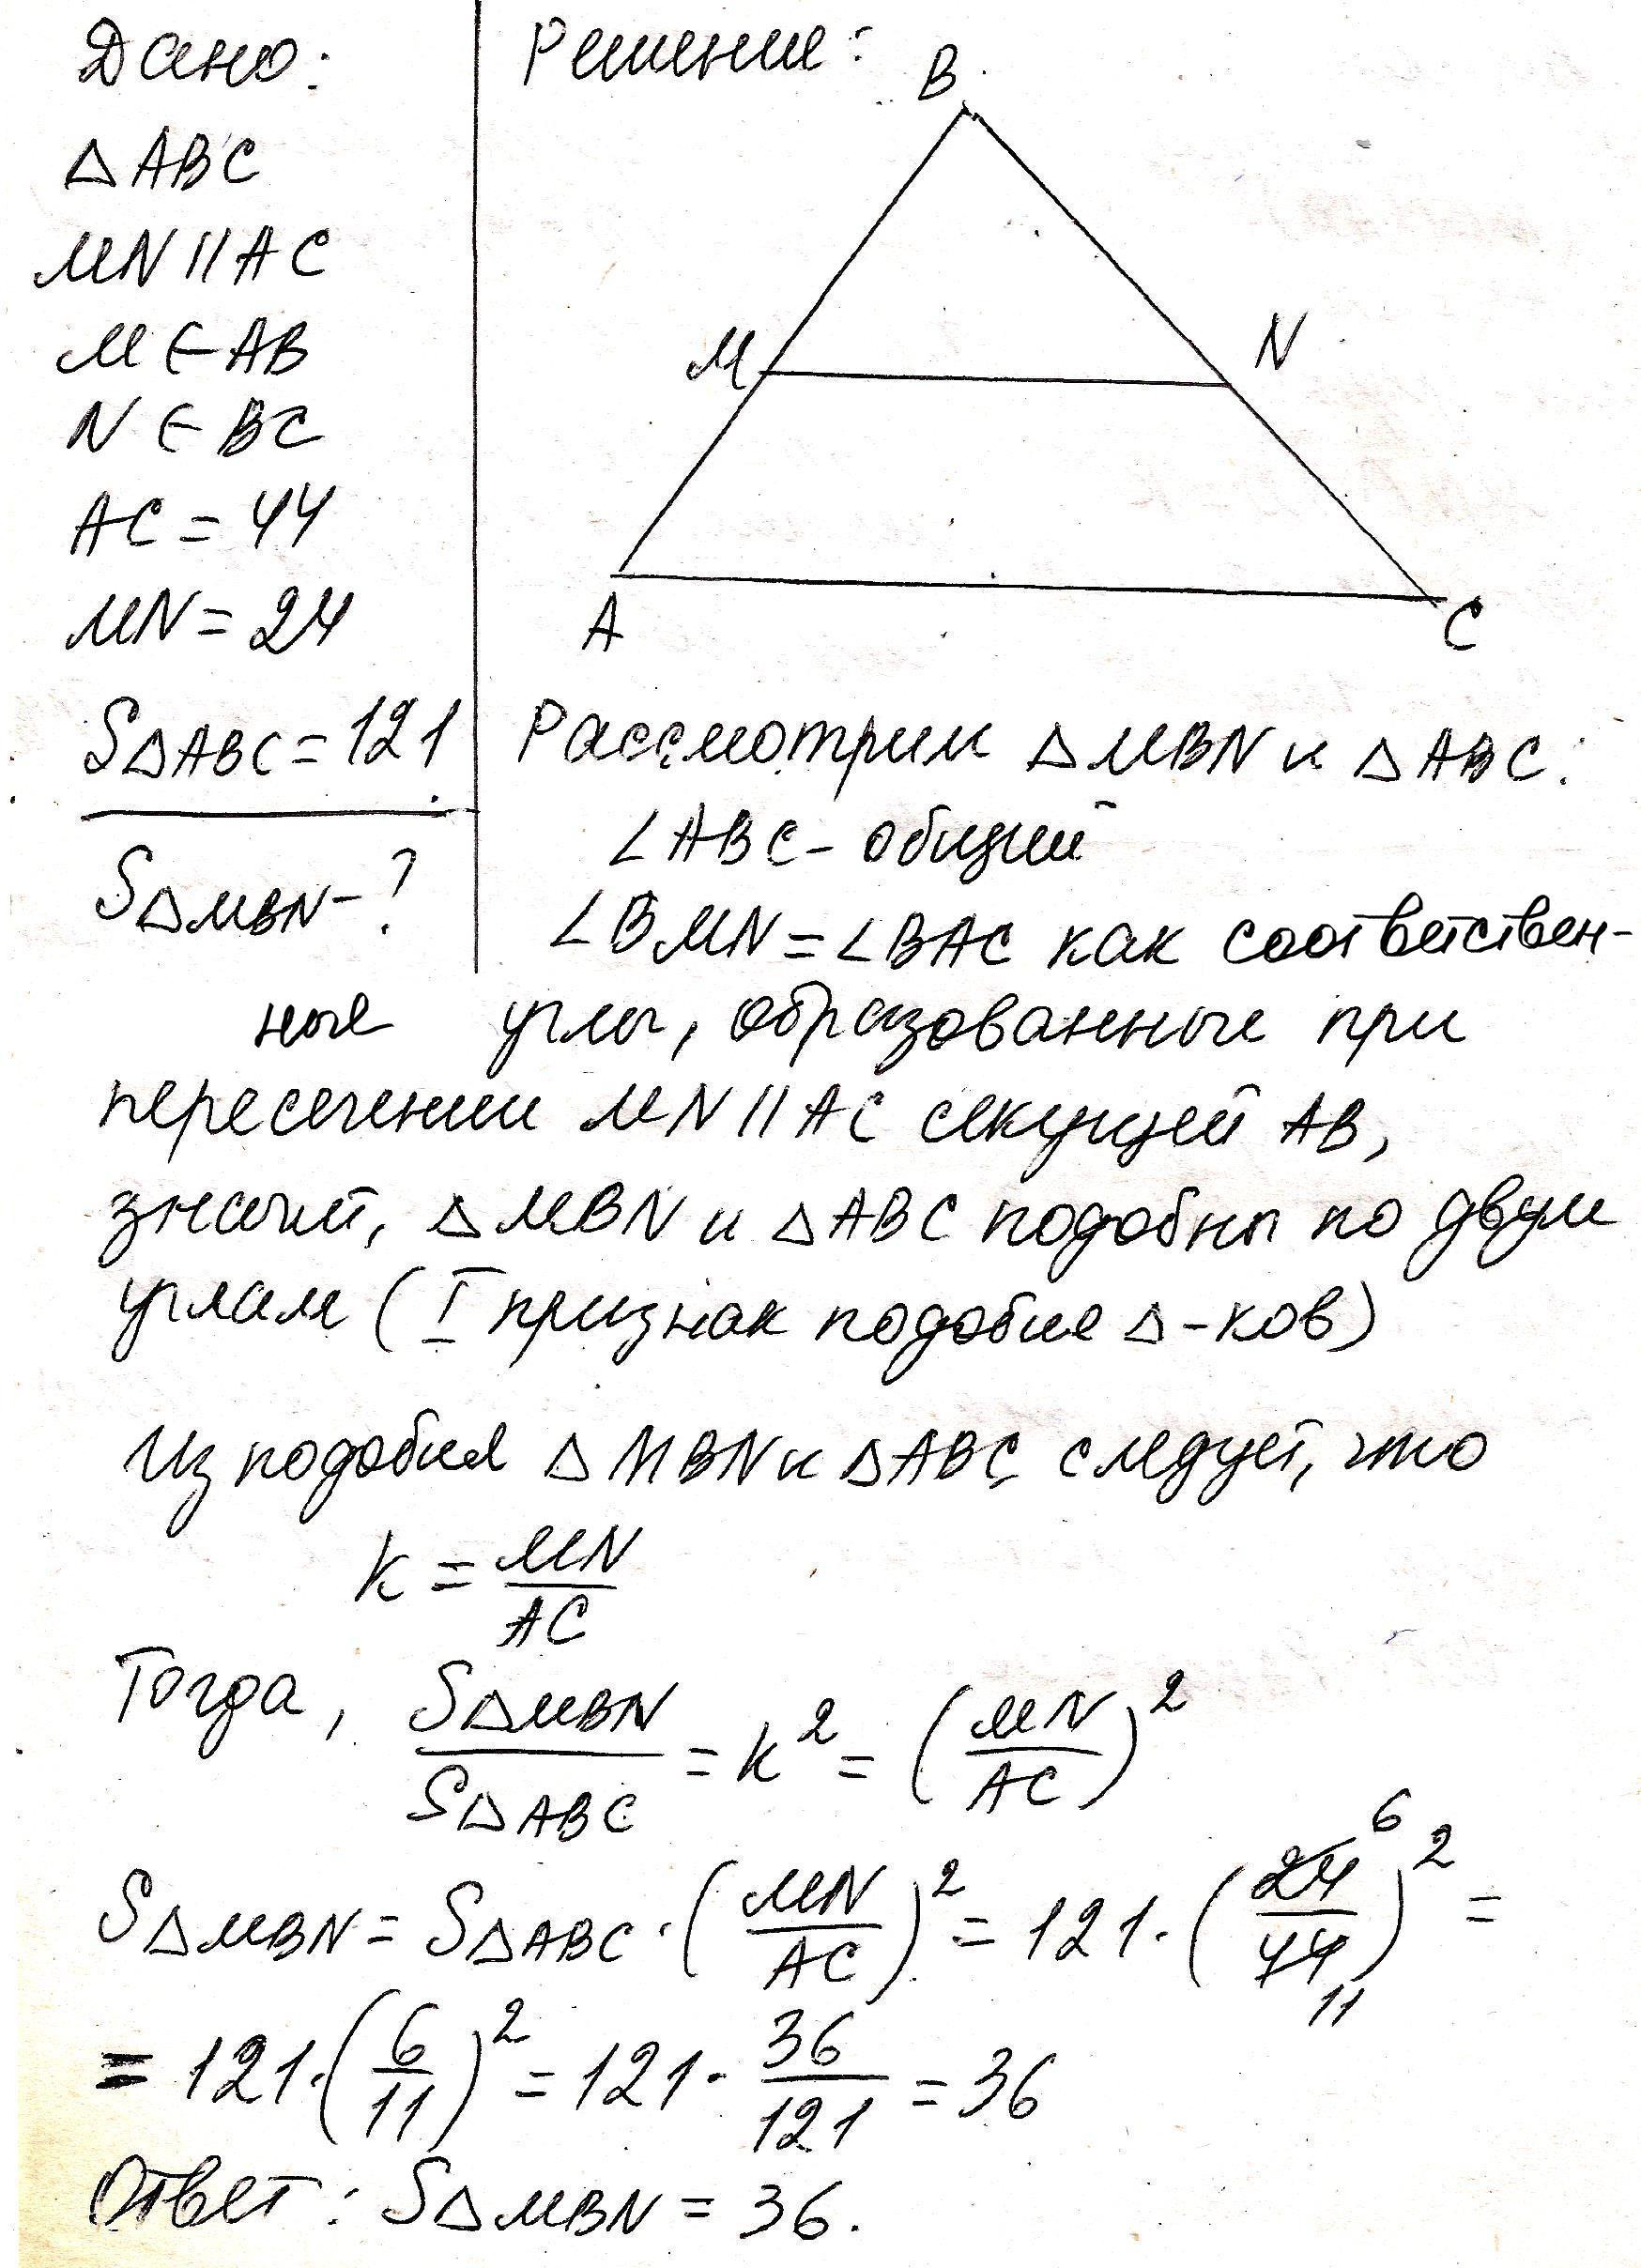 Дано:
△ABC
MN || AC
M ∈ AB
N ∈ BC
AC = 44
MN = 24
S△ABC = 121
S△MBN - ?
Решение:
B
M
N
A
C
Рассмотрим △MBN и △ABC:
∠ABC - общий
∠BMN = ∠BAC как соответствен-
ные углы, образованные при
пересечении MN || AC секущей AB,
значит, △MBN и △ABC подобны по двум
углам (I признак подобия △-ков)
Из подобия △MBN и △ABC следует, что
k = MN/AC
Тогда, S△MBN/S△ABC = k² = (MN/AC)²
S△MBN = S△ABC · (MN/AC)² = 121 · (24 6/44 11)² =
= 121 · (6/11)² = 121 · 36/121 = 36
Ответ: S△MBN = 36.